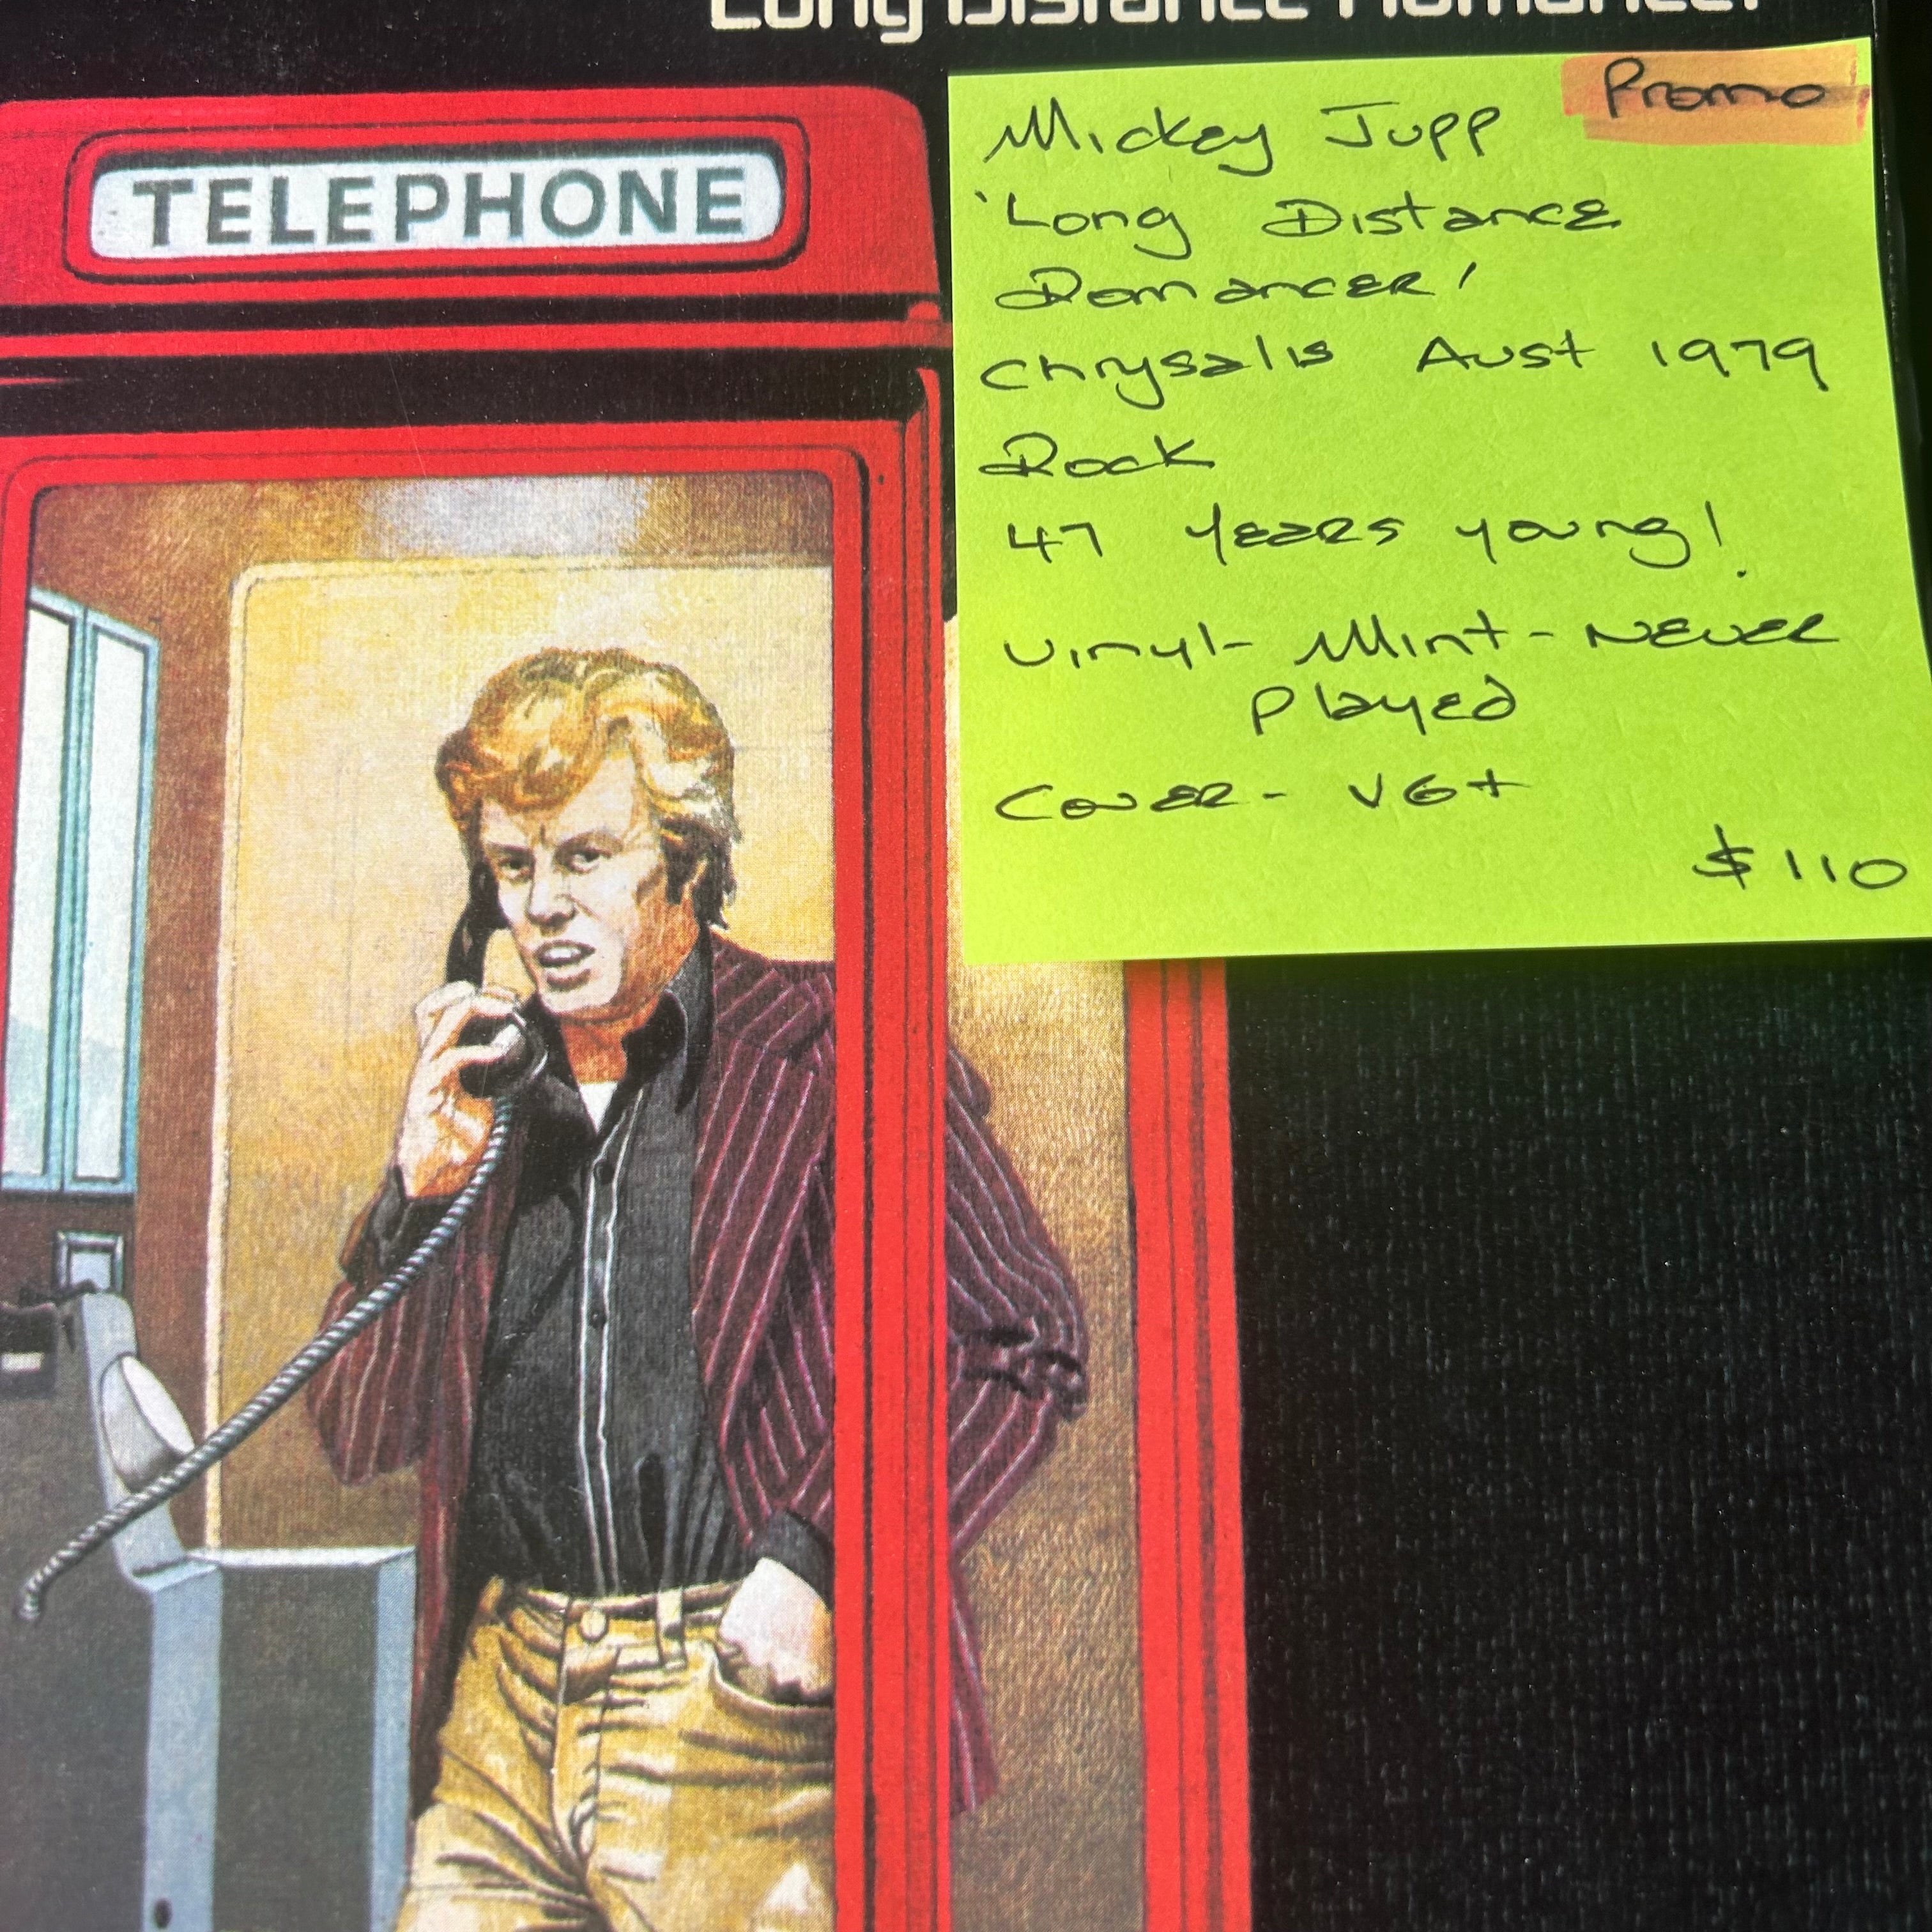 Long Distance Romancer
TELEPHONE
Promo
Mickey Jupp
'Long Distance
Romancer'
Chrysalis Aust 1979
Rock
47 years young!
Vinyl - Mint - Never
Played
Cover - VG+
$110